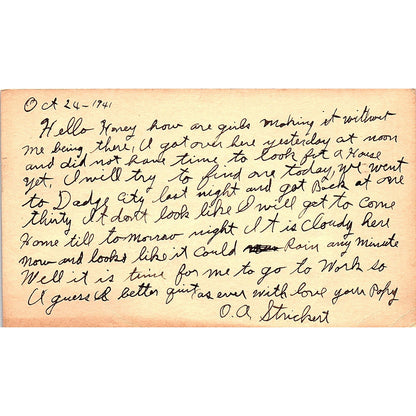 Oct 24-1941
Hello Honey how are girls making it without
me being there, I got over here yesterday at noon
and did not have time to look fit a House
yet, I will try to find one today, we went
to Dadge city last night and got Back at one
thirty It dont look like I will get to come
Home till tomorrow night It is Cloudy here
now and looks like it Could Rain any minute
Well it is time for me to go to Work so
I guess I better quit as ever with love your Popy
O.A. Strickert